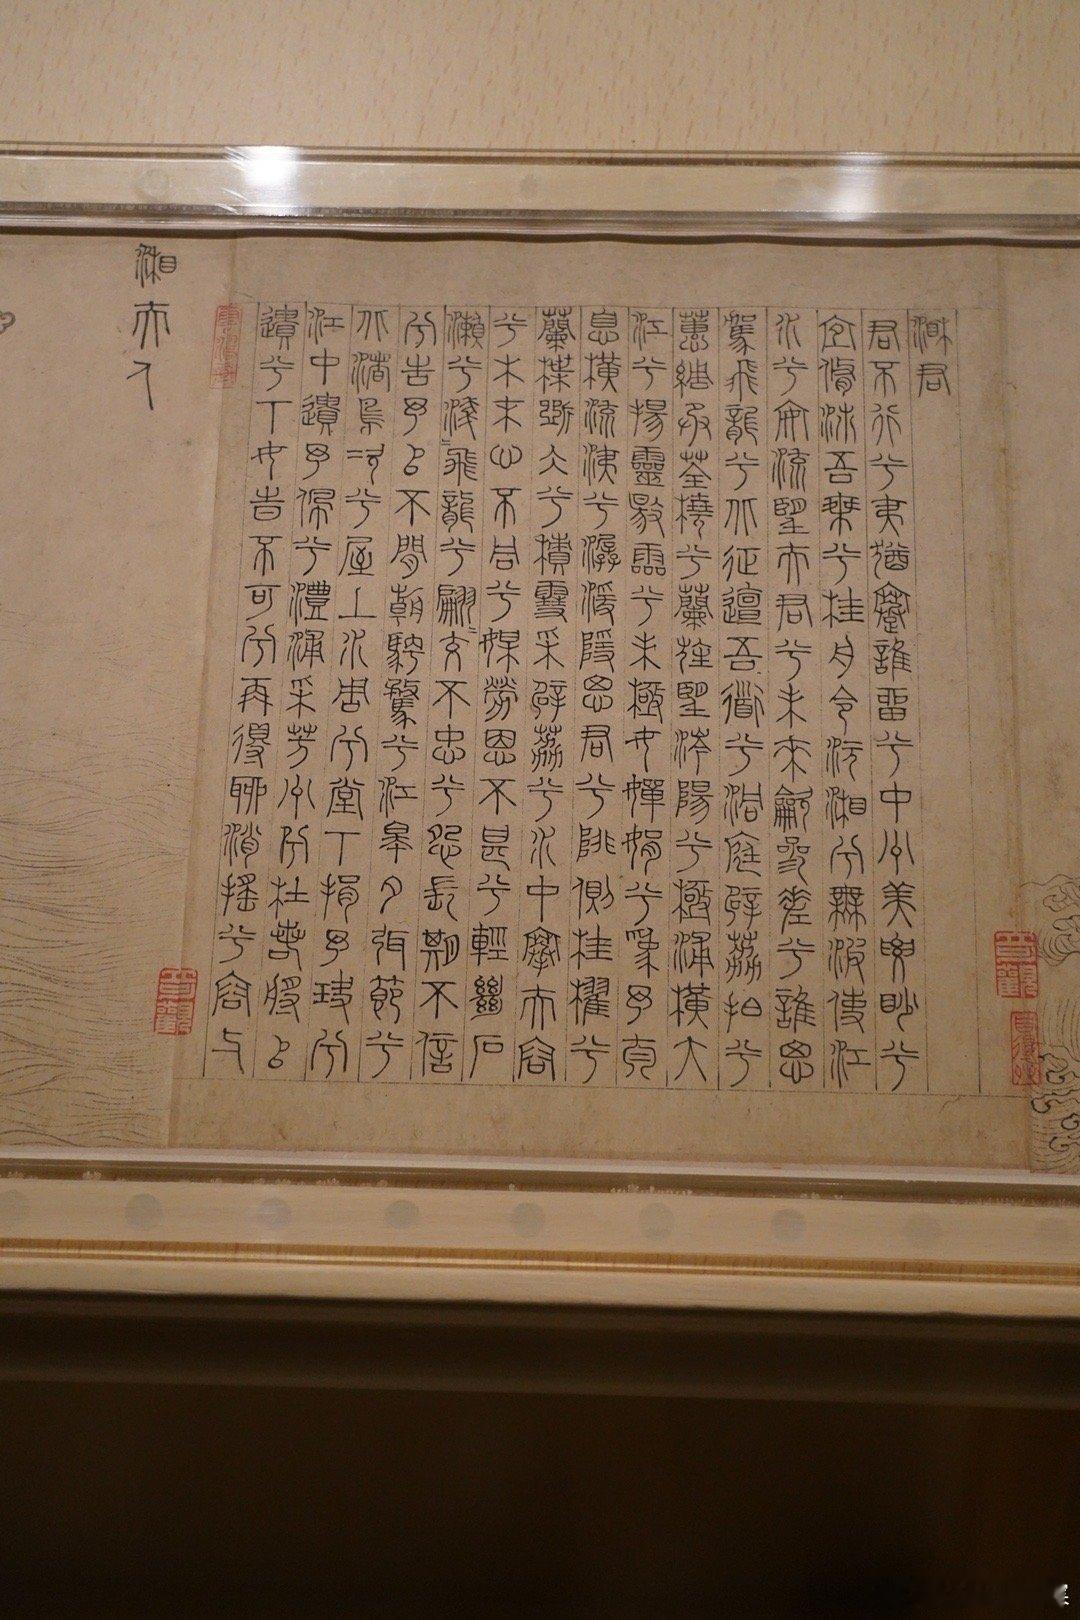 湘君
君不行兮夷猶蹇誰留兮中州美要眇兮
宜修沛吾乘兮桂舟令沅湘兮無波使江
水兮安流望夫君兮未來龡參差兮誰思
駕飛龍兮北征邅吾道兮洞庭薜荔拍兮
蕙綢承荃橈兮蘭旌望涔陽兮極浦橫大
江兮揚靈敭靈兮未極女嬋娟兮爲予
息橫流涕兮潺湲隱思君兮陫側桂櫂兮
蘭枻斲冰兮積雪采薜荔兮水中搴芙容
兮木末心不同兮媒勞恩不甚兮輕絕石
瀨兮淺淺飛龍兮翩翩交不忠兮怨長期不信
兮告予以不閒朝騁騖兮江皋夕弭節兮
北渚鳥次兮屋上水周兮堂下捐予玦兮
江中遺予佩兮澧浦采芳州兮杜若將以
遺兮下女旹不可兮再得聊逍搖兮容与
湘夫人